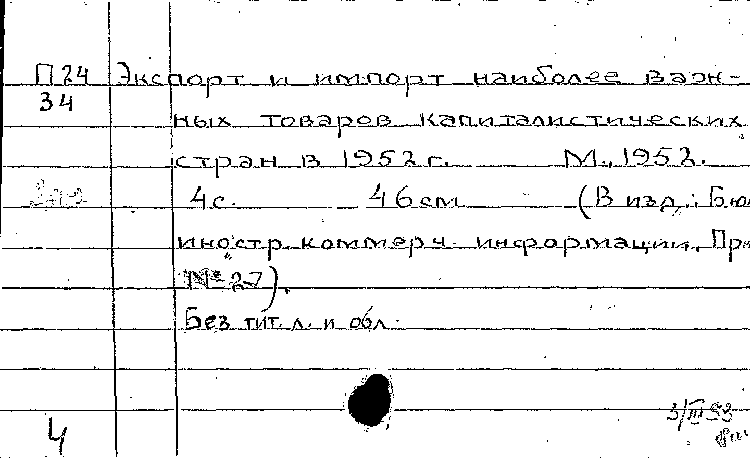 П24 Экспорт и импорт наиболее важ-
34
ных товаров капиталистических
стран в 1952 г. М., 1952.
4 с. 46 см (В изд.: Бюл
иностр. коммерч. информации. Пр
№ 27).
Без тит. л. и обл.
3/III 53
4